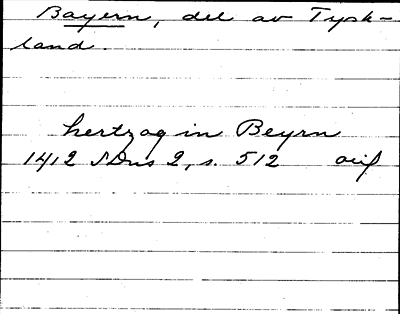 Bayern, del av Tysk-
land.
hertzog in Beyrn
1412 SDns 2, s. 512 orig